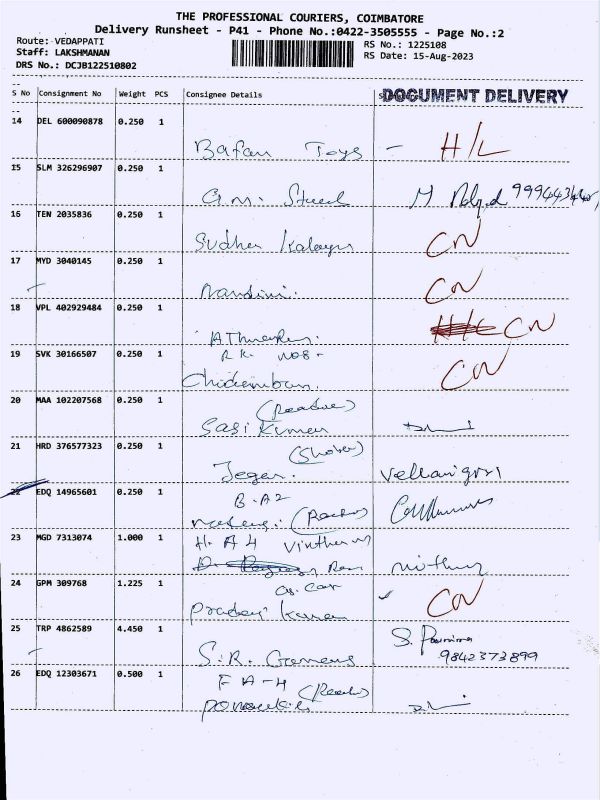 THE PROFESSIONAL COURIERS, COIMBATORE
Delivery Runsheet - P41 - Phone No.:0422-3505555 - Page No.:2
Route:-VEDAPPATI
RS No.: 1225108
Staff: LAKSHMANAN
RS Date: 15-Aug-2023
DRS No.: DCJB122510802
S No Consignment No Weight PCS Consignee Details DOCUMENT DELIVERY
14 DEL 600090878 0.250 1
Bafan Toys - H/L
15 SLM 326296907 0.250 1
G.M. M
16 TEN 2035836 0.250 1
Sudha CN
17 MYD 3040145 0.250 1
Nandini. CN
18 VPL 402929484 0.250 1
CN
R K. NOS-
19 SVK 30166507 0.250 1
CN
20 MAA 102207568 0.250 1
Sasi Kumar
21 HRD 376577323 0.250 1
Jegan. Vellaingiri
22 EDQ 14965601 0.250 1
B-A2
23 MGD 7313074 1.000 1
H. A 4
24 GPM 309768 1.225 1
CN
25 TRP 4862589 4.450 1
S.R. S.
9842373899
26 EDQ 12303671 0.500 1
F A-4